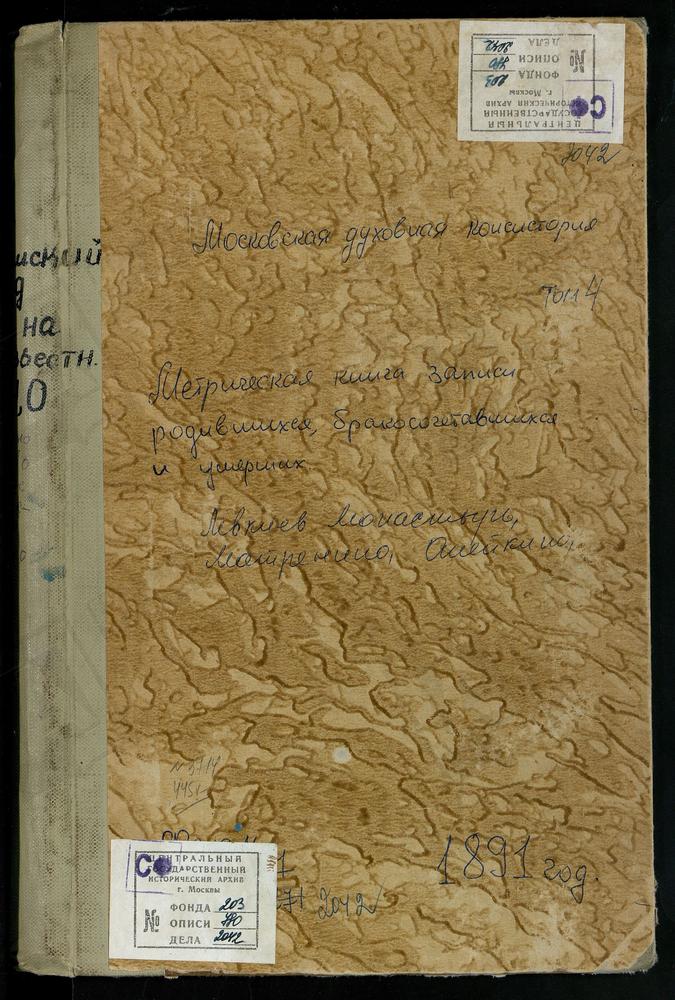 ЦЕНТРАЛЬНЫЙ
ГОСУДАРСТВЕННЫЙ
ИСТОРИЧЕСКИЙ АРХИВ
г. Москвы
ФОНДА 203
№ ОПИСИ 780
ДЕЛА 2042
2042
Московская духовная консистория
Том 4
Метрическая книга записи
родившихся, бракосочетавшихся
и умерших
Левкиев Монастырь,
Матренино, Алейкино,
ский
на
вестн.
0
N 3714
4451
1891 год.
2042
ЦЕНТРАЛЬНЫЙ
ГОСУДАРСТВЕННЫЙ
ИСТОРИЧЕСКИЙ АРХИВ
г. Москвы
ФОНДА 203
№ ОПИСИ 780
ДЕЛА 2042